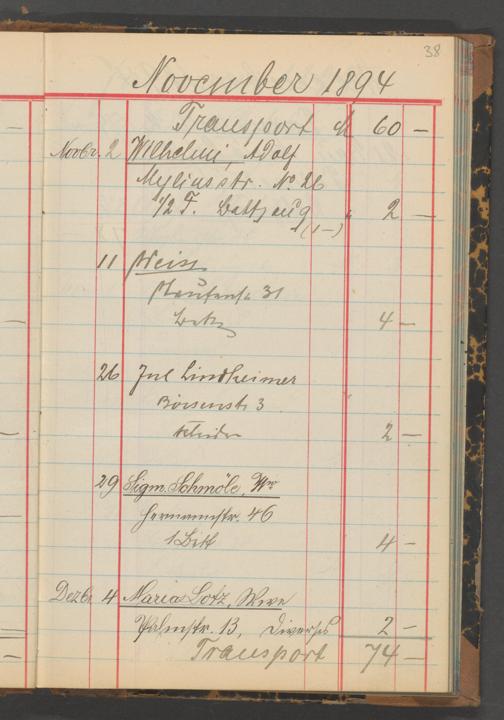 38
November 1894
Transport M 60 —
Novbr. 2 Wilhelmi, Adolf
Myliusstr. No. 26
1/2 F. Bettzeug " 2 —
(1—)
11 Weiss
31
4 —
26 Jul Lindheimer
Börsenstr 3
Kleider 2 —
29 Sigm. Schmöle, Wr
Hermannstr. 46
1 Bett 4 —
Dezbr 4 Maria Lotz, Wwe
Palmstr. 13, Diverses 2 —
Transport 74 —